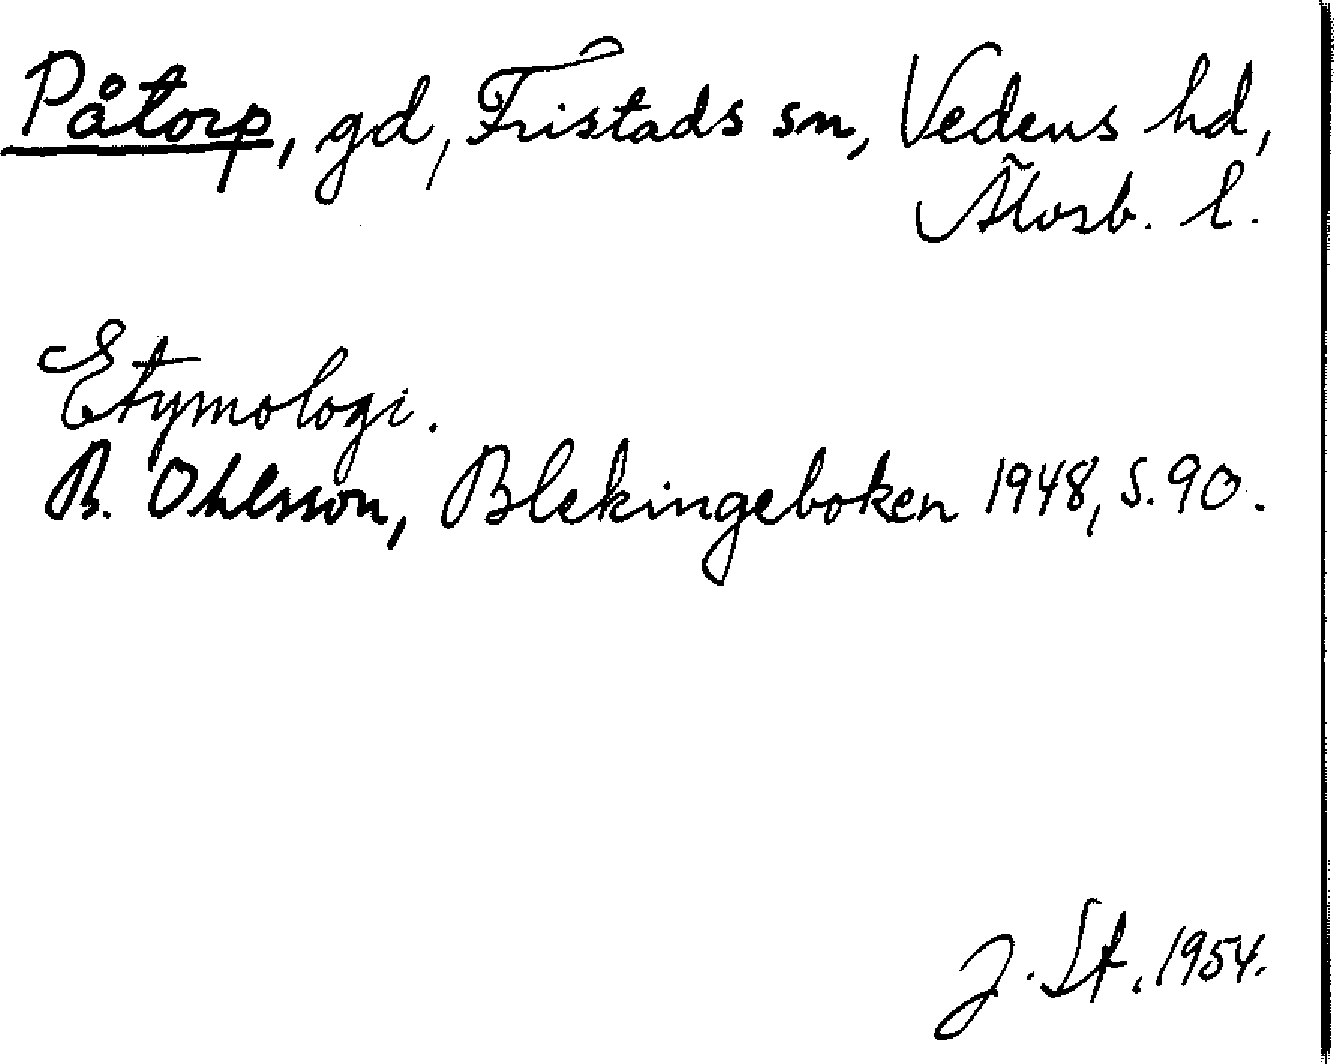 Påtorp, gd, Fristads sn, Vedens hd,
Älvsb. l.
Etymologi.
B. Ohlsson, Blekingeboken 1948, s. 90.
J. St. 1954.